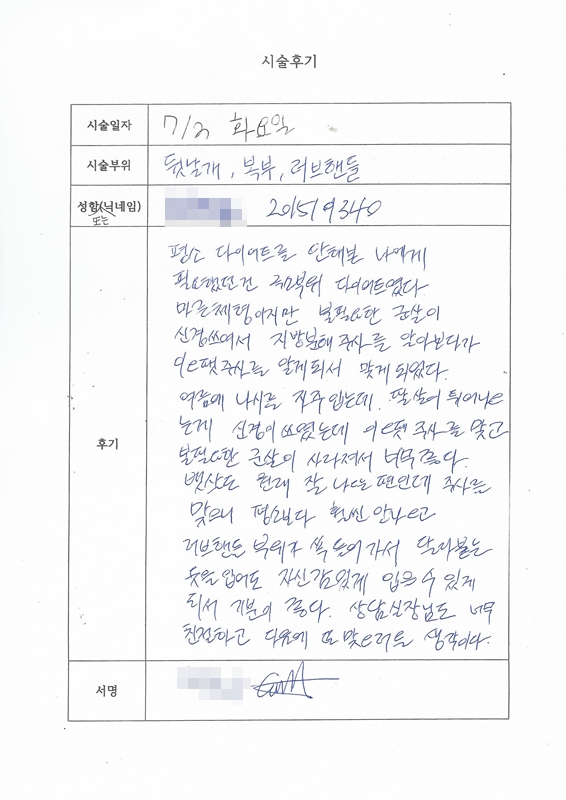 시술후기
시술일자 7/2 화요일
시술부위 뒷날개, 복부, 러브핸들
성함(닉네임) 또는 201519340
후기
평소 다이어트를 안해본 나에게
필요했던건 국소부위 다이어트였다
마른체형이지만 불필요한 군살이
신경쓰여서 지방분해 주사를 알아보다가
주사를 알게되서 맞게 되었다.
여름에 나시를 자주 입는데, 팔살이 튀어나오
는게 신경이 쓰였는데 주사를 맞고
불필요한 군살이 사라져서 너무 좋다.
뱃살도 원래 잘 나오는 편인데 주사를
맞으니 평소보다 훨씬 안나오고
러브핸들 부위가 쏙 들어가서 달라붙는
옷을 입어도 자신감있게 입을 수 있게
되서 기분이 좋다. 상담실장님도 너무
친절하고 다음에 또 맞으러올 생각이다.
서명